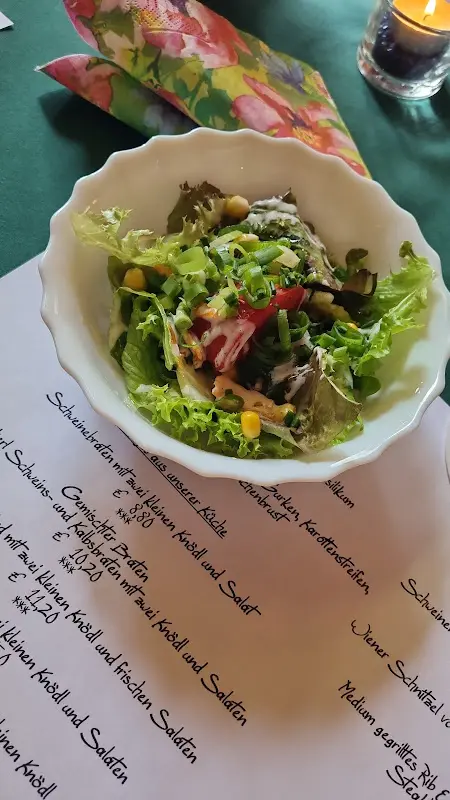 aus unserer Küche
Schweinebraten mit zwei kleinen Knödl und Salat
€ 8,80
***
Gemischter Braten
Schweins- und Kalbsbraten mit zwei Knödl und Salaten
€ 10,20
***
mit zwei kleinen Knödl und frischen Salaten
€ 11,20
***
kleinen Knödl und Salaten
kleinen Knödl
silikon
Gurken, Karottenstreifen,
Wiener Schnitzel
Medium gegrilltes Rib